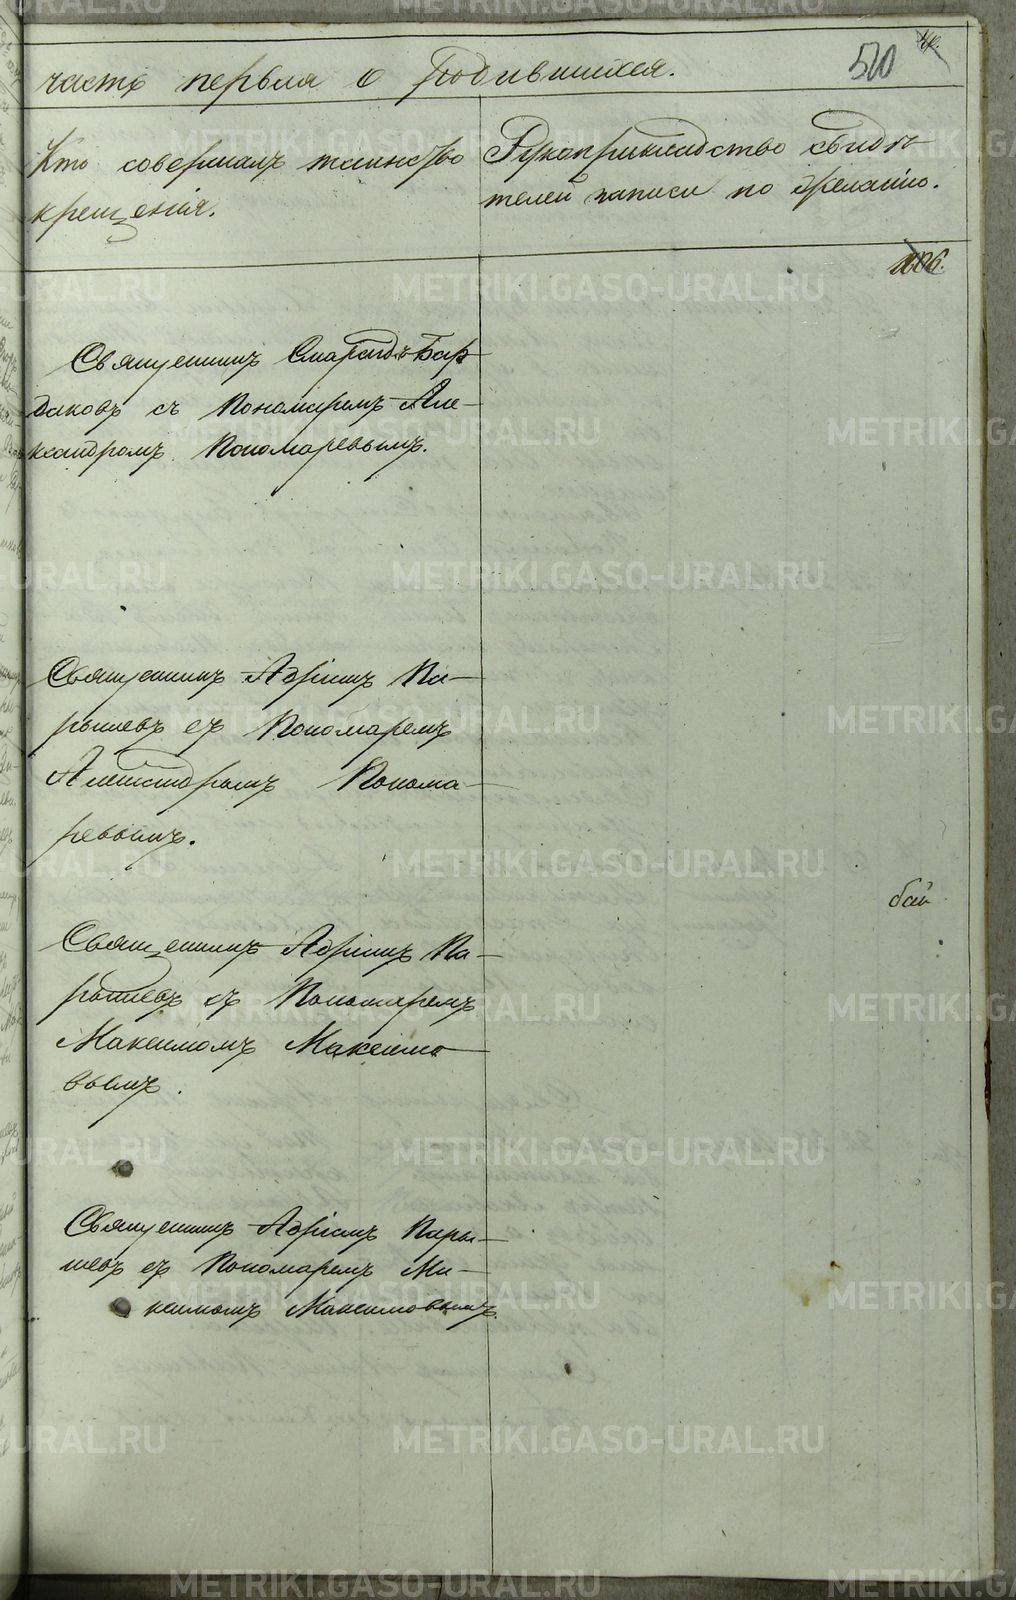 часть первая о Родившихся.
510
Кто совершалъ таинство
крещенія.
Рукоприкладство свидѣ-
телей записи по желанію.
Священникъ Смарагдъ Бар-
даковъ съ Пономаремъ Але-
ксандромъ Пономаревымъ.
Священникъ Адріанъ Па-
рышевъ съ Пономаремъ
Александромъ Понома-
ревымъ.
Священникъ Адріанъ Па-
рышевъ съ Пономаремъ
Максимомъ Максимо-
вымъ.
Священникъ Адріанъ Пары-
шевъ съ Пономаремъ Ма-
ксимомъ Максимовымъ.
METRIKI.GASO-URAL.RU